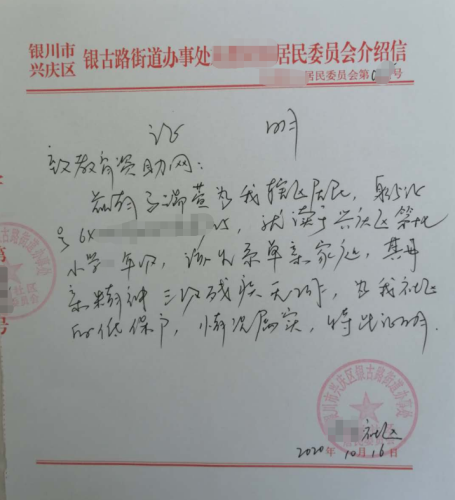 银川市
兴庆区 银古路街道办事处 居民委员会介绍信
居民委员会第 号
证 明
致教育资助网:
兹有 为我辖区居民,身份证
号64 ,就读于兴庆区第
小学 年级,该生系单亲家庭,其母
亲精神三级残疾无工作,为我社区
的低保户,情况属实,特此证明.
社区
2020年10月16日